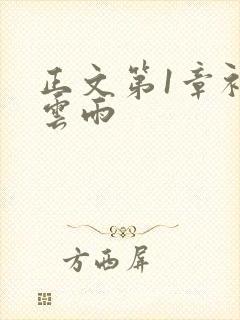 正文第1章初
雲雨
方西屏